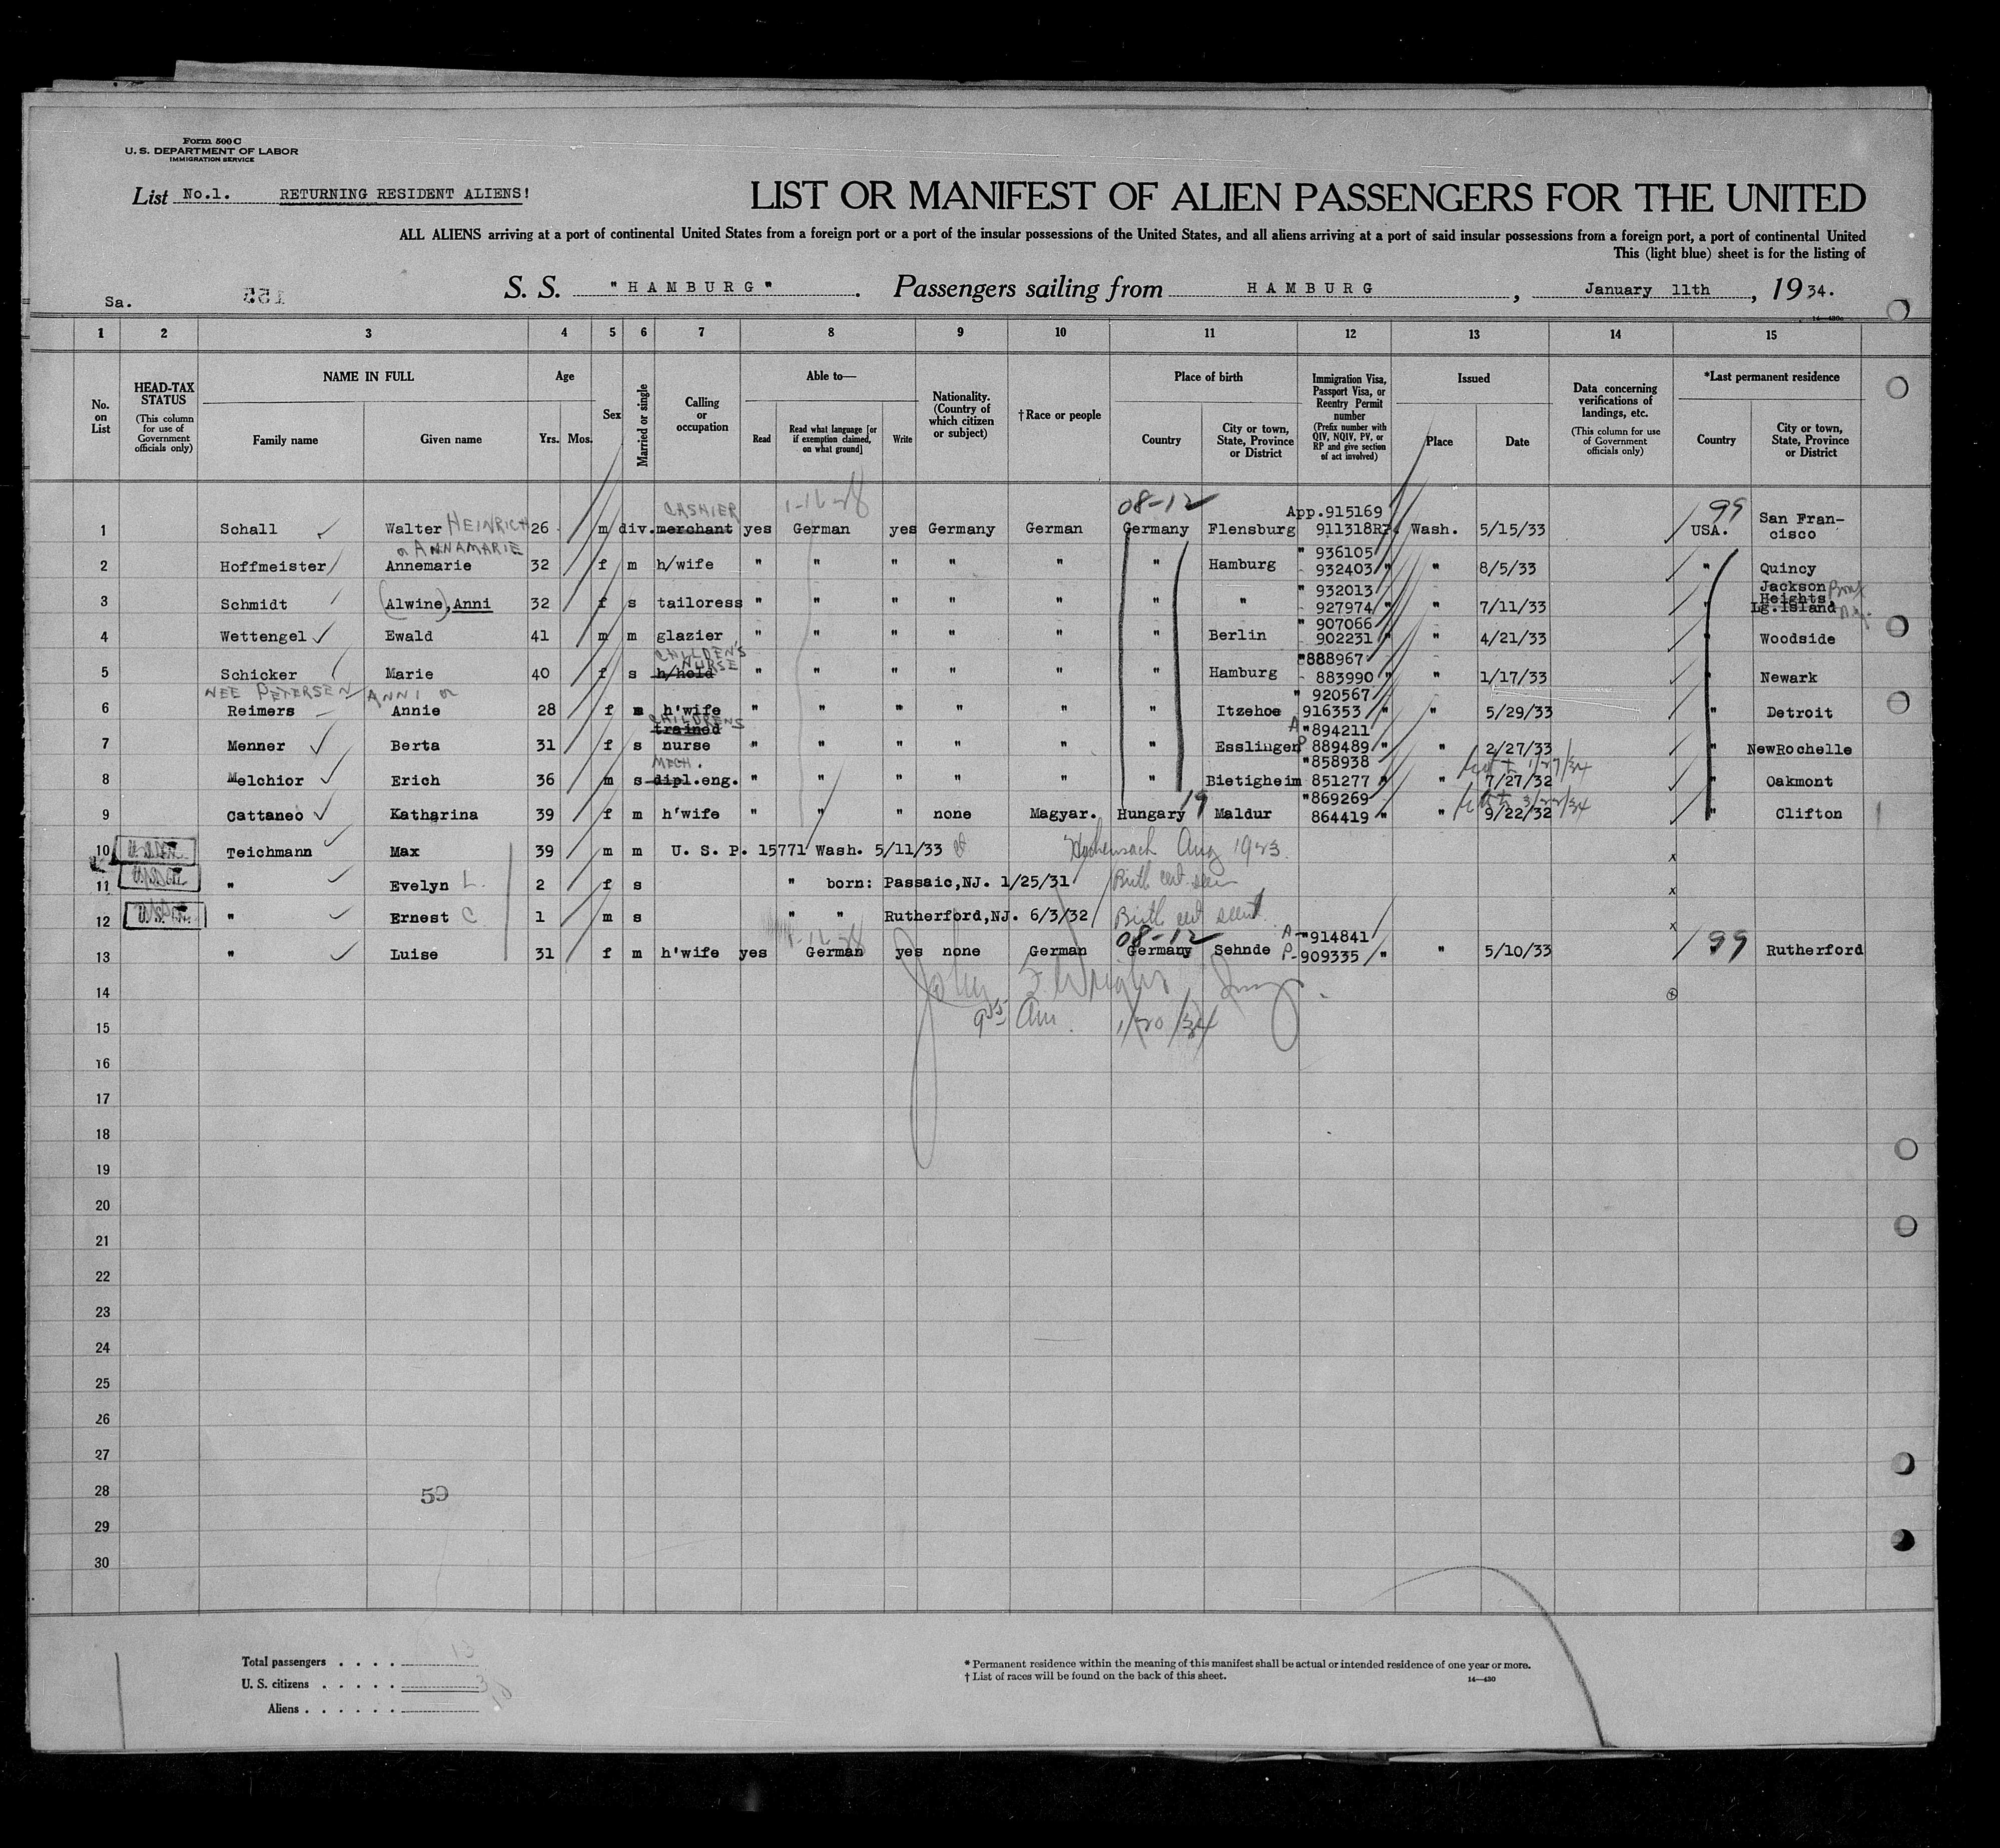 Form 500 C
U. S. DEPARTMENT OF LABOR
IMMIGRATION SERVICE
List No.1. RETURNING RESIDENT ALIENS!
LIST OR MANIFEST OF ALIEN PASSENGERS FOR THE UNITED
ALL ALIENS arriving at a port of continental United States from a foreign port or a port of the insular possessions of the United States, and all aliens arriving at a port of said insular possessions from a foreign port, a port of continental United
This (light blue) sheet is for the listing of
Sa. S. S. "HAMBURG". Passengers sailing from HAMBURG, January 11th, 1934.
1 2 3 4 5 6 7 8 9 10 11 12 13 14 15
No. on List
HEAD-TAX STATUS (This column for use of Government officials only)
NAME IN FULL Family name Given name
Age Yrs. Mos.
Sex
Married or single
Calling or occupation
Able to— Read Read what language [or if exemption claimed, on what ground] Write
Nationality. (Country of which citizen or subject)
†Race or people
Place of birth Country City or town, State, Province or District
Immigration Visa, Passport Visa, or Reentry Permit number (Prefix number with QIV, NQIV, PV, or RP and give section of act involved)
Issued Place Date
Data concerning verifications of landings, etc. (This column for use of Government officials only)
*Last permanent residence Country City or town, State, Province or District
CASHIER 08-12 App.915169 99 San Fran-
1 Schall Walter HEINRICH 26 m div. merchant yes German yes Germany German Germany Flensburg 911318RP. Wash. 5/15/33 USA. cisco
or ANNAMARIE " 936105
2 Hoffmeister Annemarie 32 f m h/wife " " " " " " Hamburg 932403 " " 8/5/33 " Quincy
" 932013 Jackson Heights,
3 Schmidt (Alwine), Anni 32 f s tailoress " " " " " " " 927974 " " 7/11/33 " Lg.Island
" 907066
4 Wettengel Ewald 41 m m glazier " " " " " " Berlin 902231 " " 4/21/33 " Woodside
CHILDEN'S NURSE "888967
5 Schicker Marie 40 f s h/hold " " " " " " Hamburg 883990 " " 1/17/33 " Newark
NEE PETERSEN ANNI or " 920567
6 Reimers Annie 28 f m h'wife " " " " " " Itzehoe 916353 " " 5/29/33 " Detroit
CHILDRENS trained A "894211
7 Menner Berta 31 f s nurse " " " " " " Esslingen P 889489 " " 2/27/33 " NewRochelle
MECH. "858938 1/27/34
8 Melchior Erich 36 m s dipl.eng. " " " " " " Bietigheim 851277 " " 7/27/32 " Oakmont
19 "869269 3/22/34
9 Cattaneo Katharina 39 f m h'wife " " " none Magyar. Hungary Maldur 864419 " " 9/22/32 " Clifton
10 Teichmann Max 39 m m U. S. P. 15771 Wash. 5/11/33 Aug 1923 x
11 " Evelyn L. 2 f s " born: Passaic,NJ. 1/25/31 Birth cert seen x
12 " Ernest C 1 m s " " Rutherford,NJ. 6/3/32 Birth cert seen x
08-12 A-"914841
13 " Luise 31 f m h'wife yes German yes none German Germany Sehnde P-909335 " " 5/10/33 99 Rutherford
14
John Wright
15 9 55 Am 1/20/34
16
17
18
19
20
21
22
23
24
25
26
27
28 59
29
30
Total passengers . . . . 13
U. S. citizens . . . . . 3
Aliens . . . . . . 10
* Permanent residence within the meaning of this manifest shall be actual or intended residence of one year or more.
† List of races will be found on the back of this sheet.
14—430